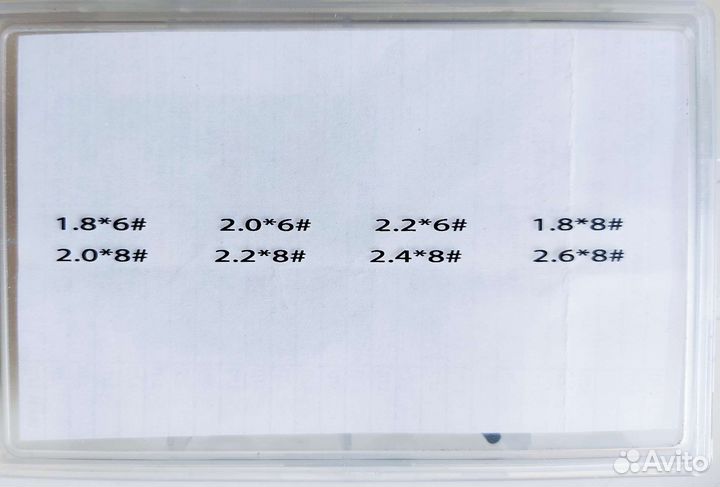 1.8*6# 2.0*6# 2.2*6# 1.8*8#
2.0*8# 2.2*8# 2.4*8# 2.6*8#
Avito